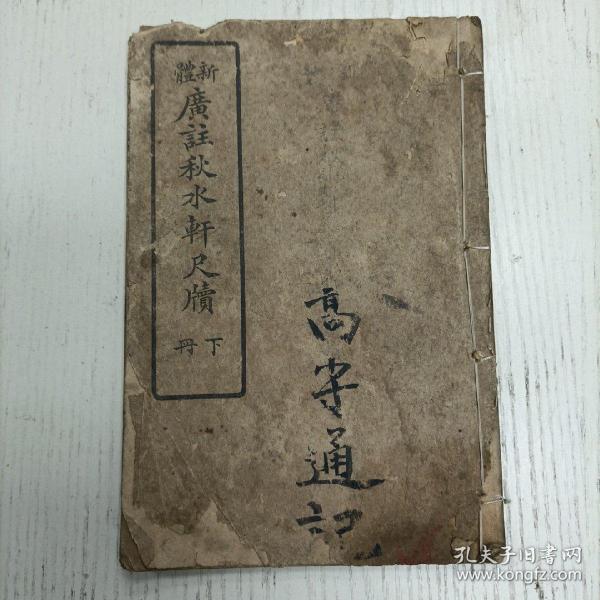 新體
廣註秋水軒尺牘
下冊
高守通記
孔夫子旧书网
www.kongfz.com